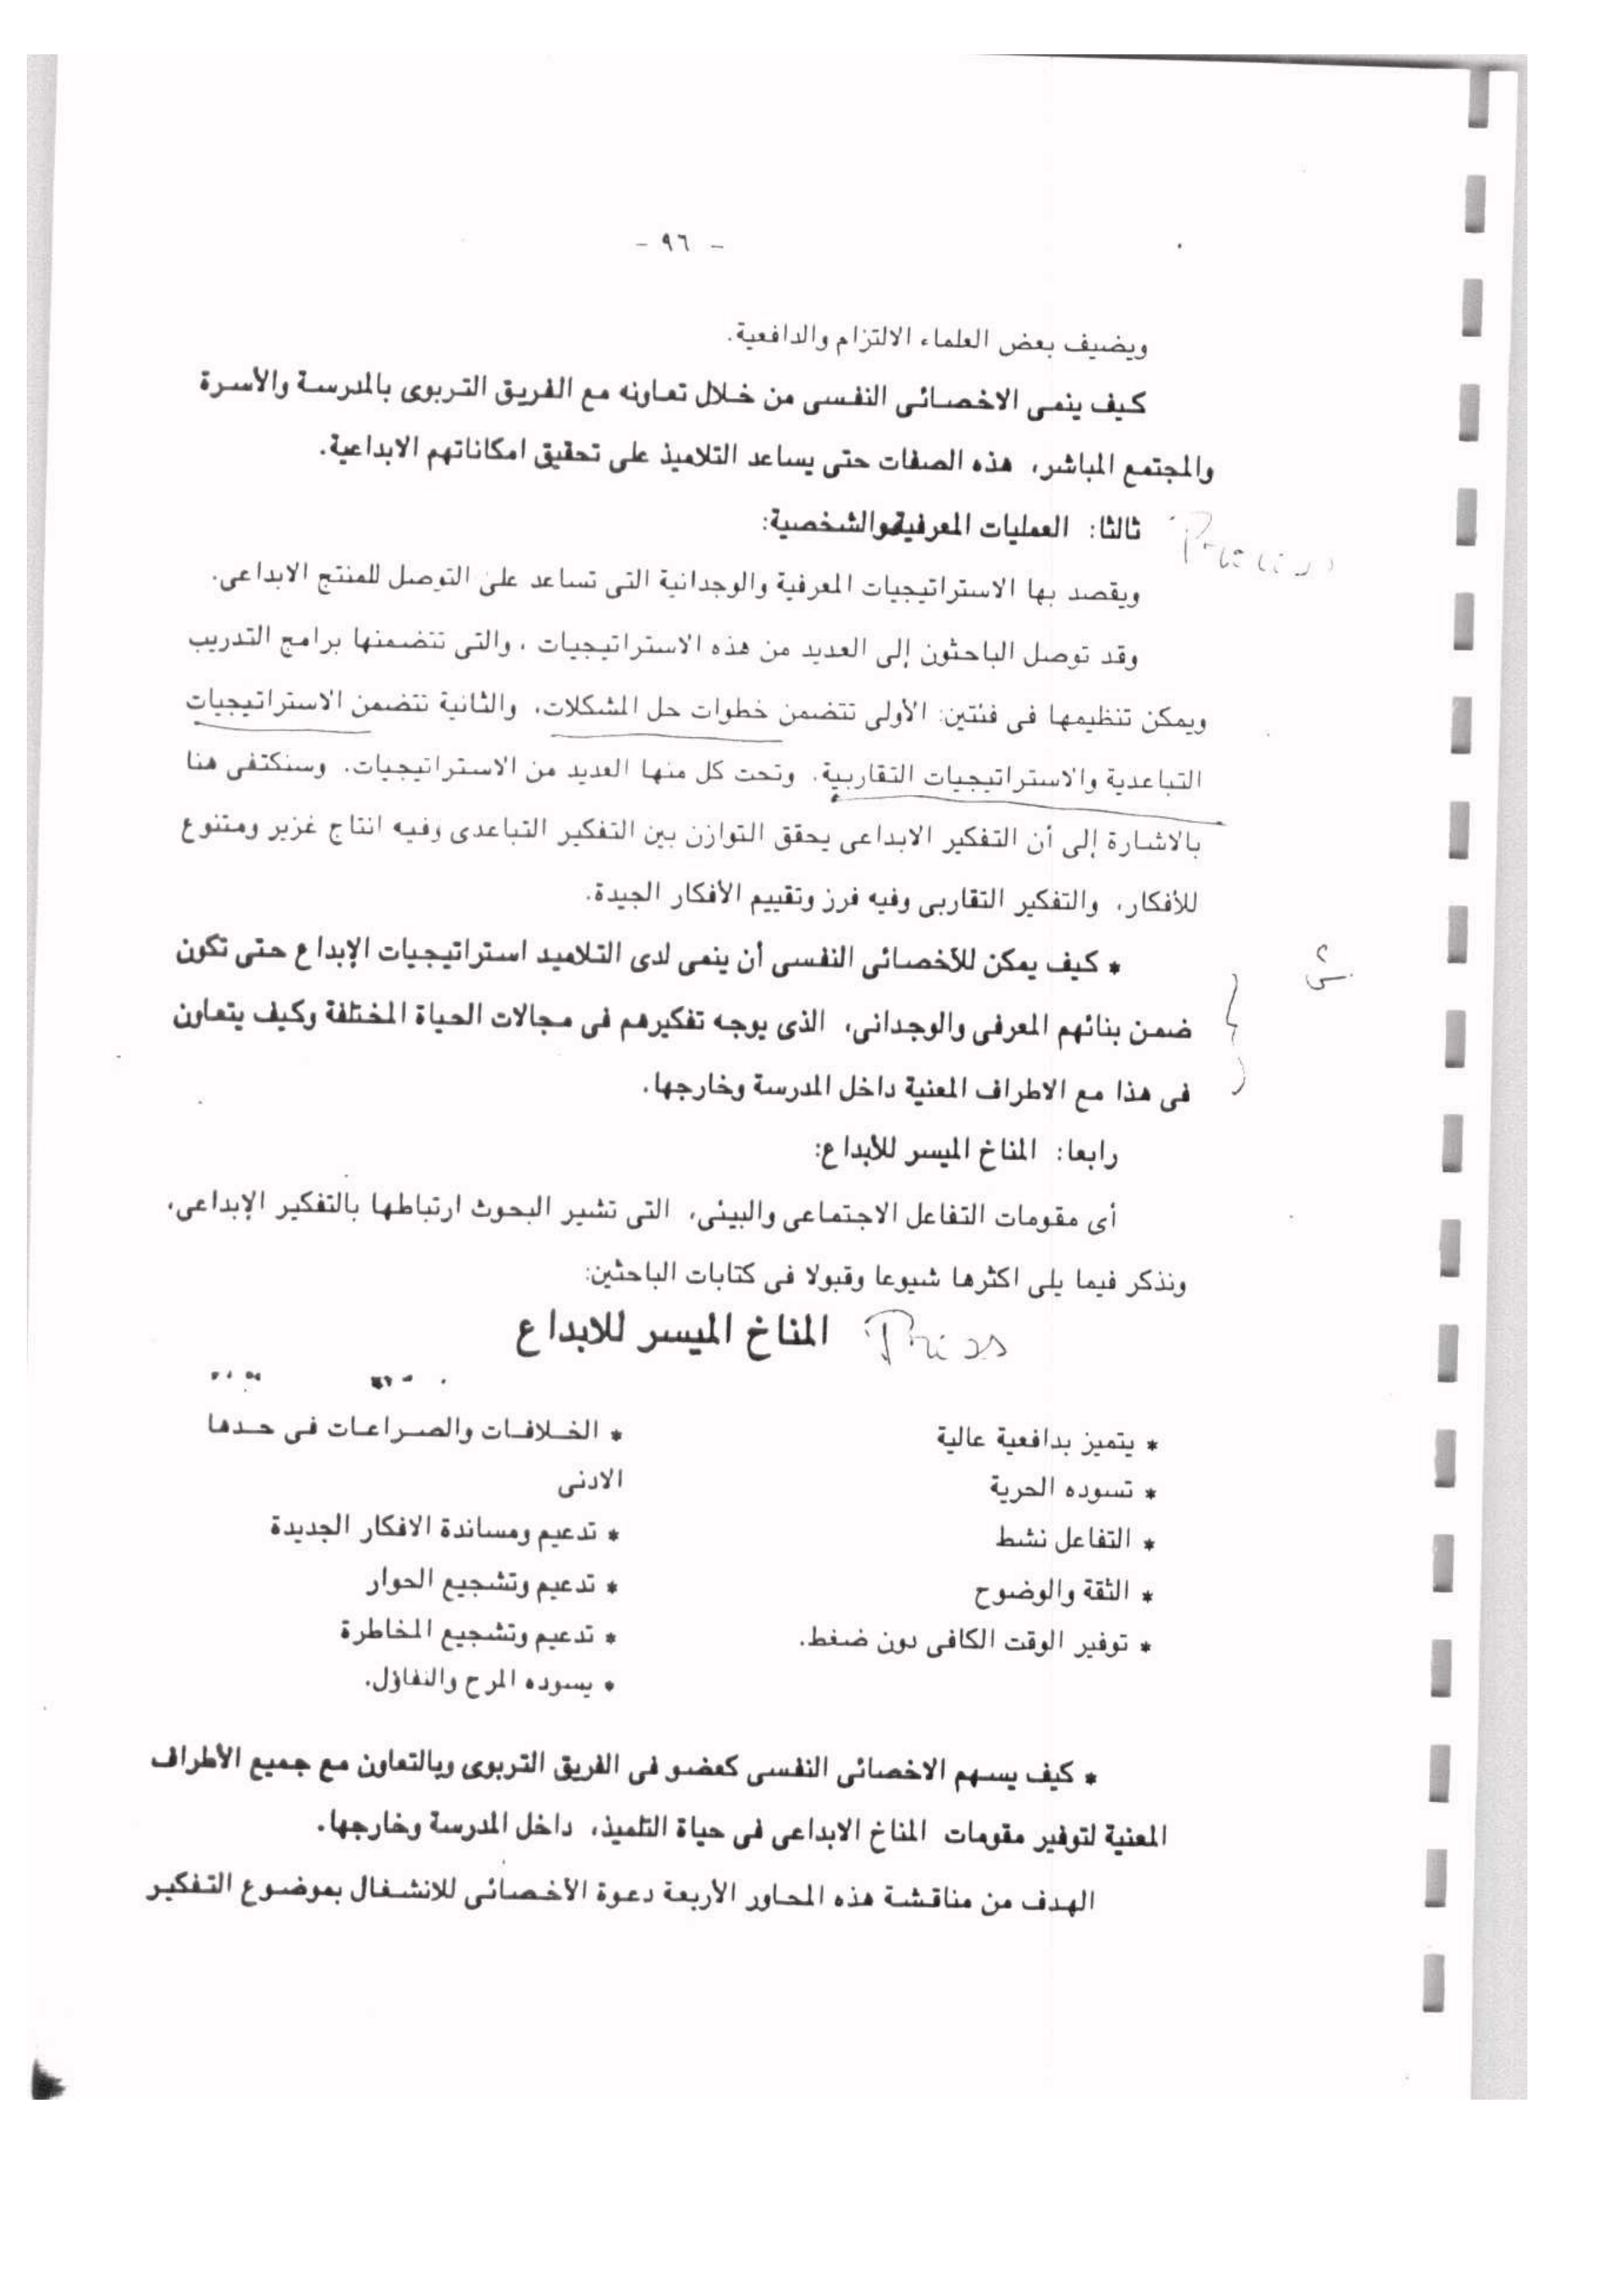 - ٩٦ -
ويضيف بعض العلماء الالتزام والدافعية.
كيف ينمى الاخصائى النفسى من خلال تعاونه مع الفريق التربوى بالمدرسة والأسرة
والمجتمع المباشر، هذه الصفات حتى يساعد التلاميذ على تحقيق امكاناتهم الابداعية.
ثالثا: العمليات المعرفية والشخصية:
ويقصد بها الاستراتيجيات المعرفية والوجدانية التى تساعد على التوصل للمنتج الابداعى.
وقد توصل الباحثون إلى العديد من هذه الاستراتيجيات ، والتى تتضمنها برامج التدريب
ويمكن تنظيمها فى فئتين: الأولى تتضمن خطوات حل المشكلات، والثانية تتضمن الاستراتيجيات
التباعدية والاستراتيجيات التقاربية. وتحت كل منها العديد من الاستراتيجيات. وسنكتفى هنا
بالاشارة إلى أن التفكير الابداعى يحقق التوازن بين التفكير التباعدى وفيه انتاج غزير ومتنوع
للأفكار، والتفكير التقاربى وفيه فرز وتقييم الأفكار الجيدة.
* كيف يمكن للأخصائى النفسى أن ينمى لدى التلاميد استراتيجيات الإبداع حتى تكون
ضمن بنائهم المعرفى والوجدانى، الذى يوجه تفكيرهم فى مجالات الحياة المختلفة وكيف يتعاون
فى هذا مع الاطراف المعنية داخل المدرسة وخارجها.
رابعا: المناخ الميسر للأبداع:
أى مقومات التفاعل الاجتماعى والبيئى، التى تشير البحوث ارتباطها بالتفكير الإبداعى،
ونذكر فيما يلى اكثرها شيوعا وقبولا فى كتابات الباحثين:
المناخ الميسر للابداع
* يتميز بدافعية عالية
* تسوده الحرية
* التفاعل نشط
* الثقة والوضوح
* توفير الوقت الكافى دون ضغط.
* الخلافات والصراعات فى حدها
الادنى
* تدعيم ومساندة الافكار الجديدة
* تدعيم وتشجيع الحوار
* تدعيم وتشجيع المخاطرة
* يسوده المرح والتفاؤل.
* كيف يسهم الاخصائى النفسى كعضو فى الفريق التربوى وبالتعاون مع جميع الأطراف
المعنية لتوفير مقومات المناخ الابداعى فى حياة التلميذ، داخل المدرسة وخارجها.
الهدف من مناقشة هذه المحاور الأربعة دعوة الأخصائى للانشغال بموضوع التفكير